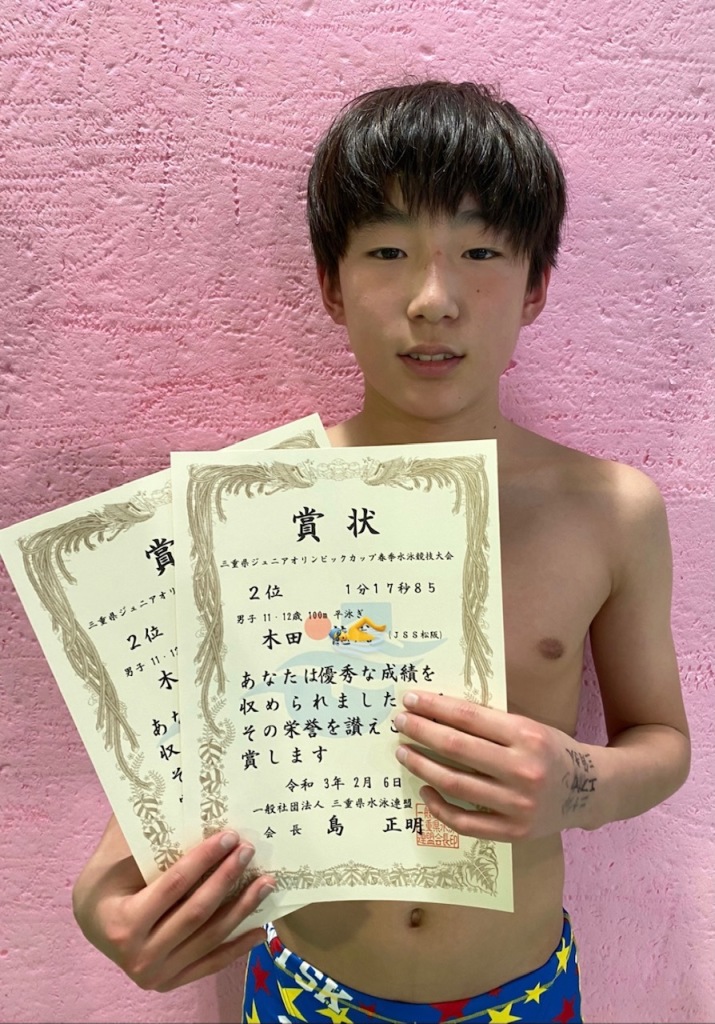 賞状
三重県ジュニアオリンピックカップ春季水泳競技大会
2位 1分17秒85
男子 11・12歳 100m 平泳ぎ
木田 (JSS松阪)
あなたは優秀な成績を
収められました
その栄誉を讃えこ
賞します
令和 3年 2月 6日
一般社団法人 三重県水泳連盟
会長 島 正明
賞
三重県ジュニアオリ
2位
男子 11・12
木
あな
収め
その